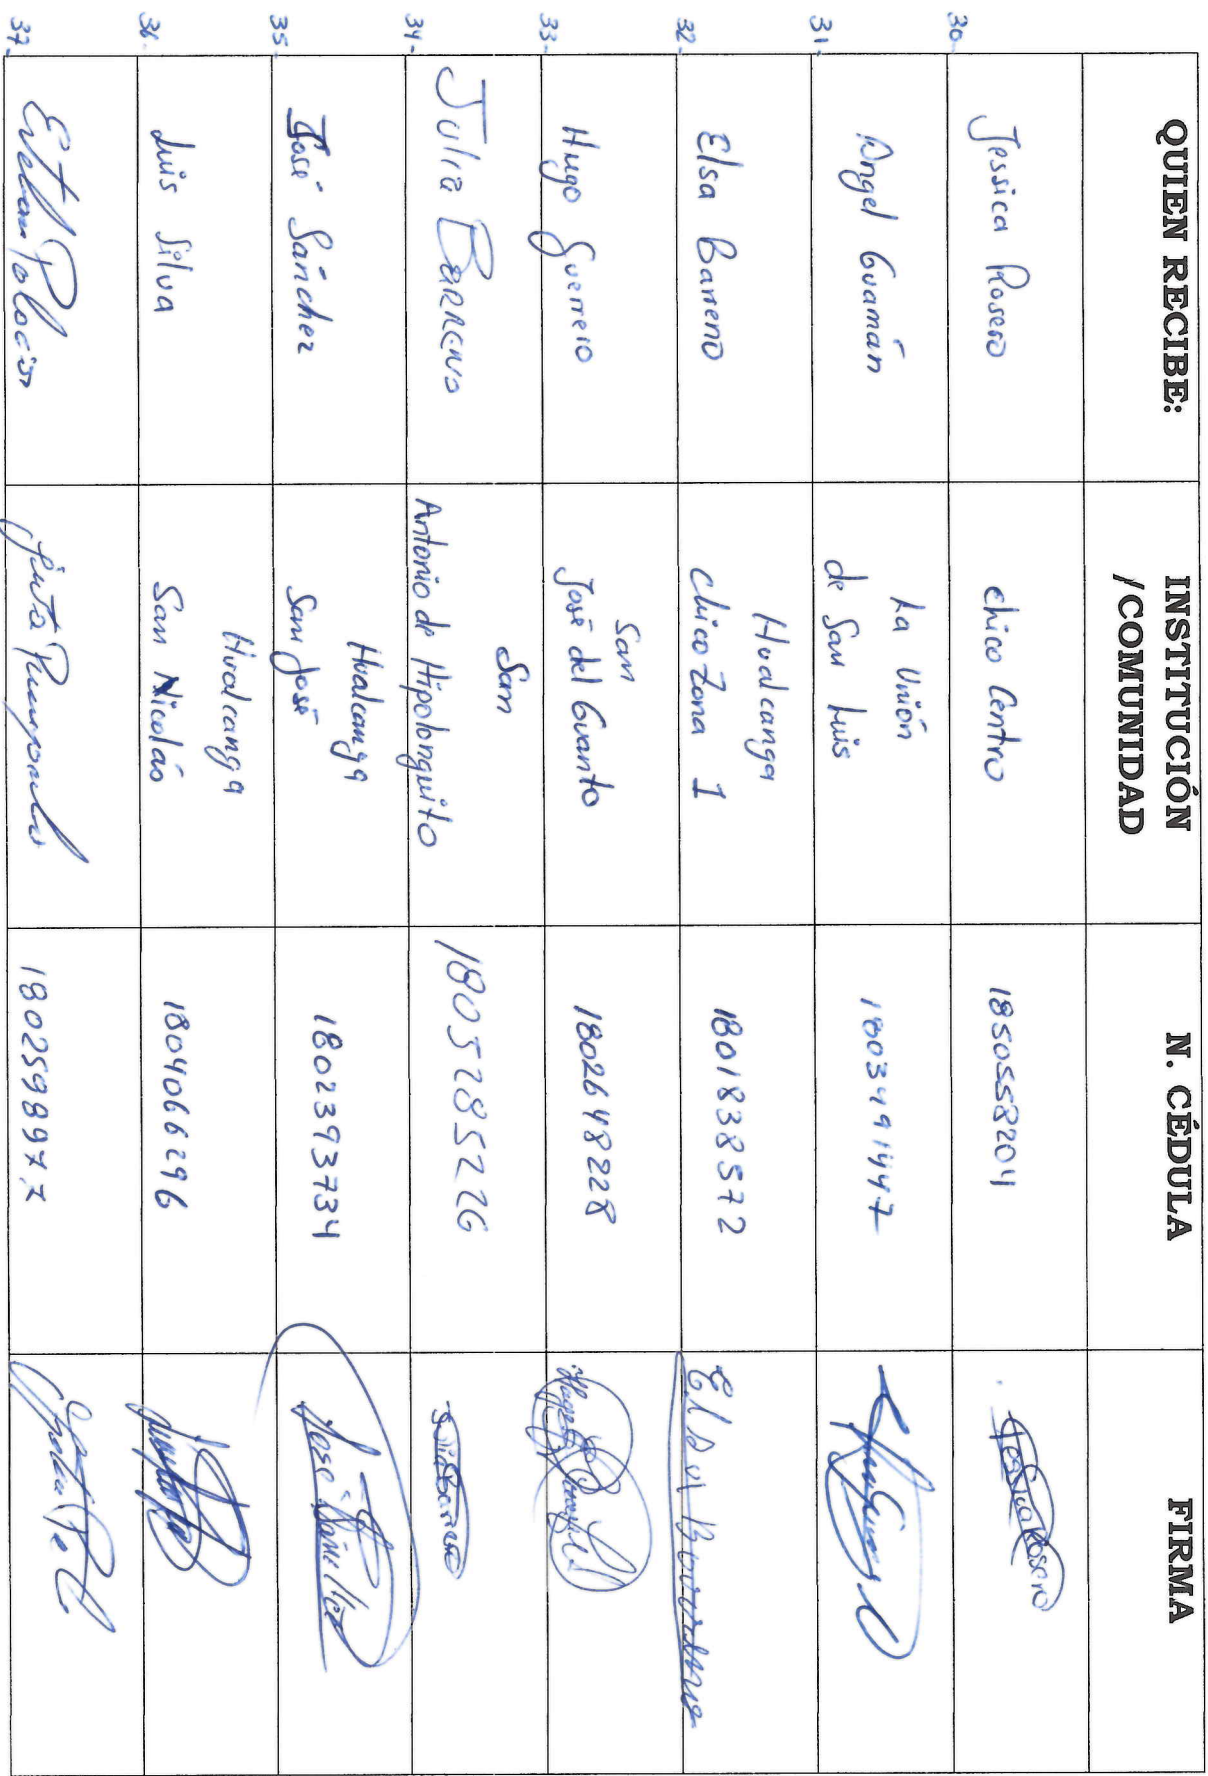 QUIEN RECIBE: INSTITUCIÓN /COMUNIDAD N. CÉDULA FIRMA
30- Jessica Rosero Chico Centro 1850558204 Jessica Rosero
31- Angel Guamán La Unión de San Luis 1803491447
32- Elsa Barreno Hualcanga Chico Zona 1 1801838572
33- Hugo Guerrero San José del Guanto 1802648228
34- Julia Barreno San Antonio de Hipolonguito 1805285226 Julia Barreno
35- José Sánchez Hualcanga San José 1802393734 José Sánchez
36- Luis Silva Hualcanga San Nicolás 1804066296
37- 1802598977